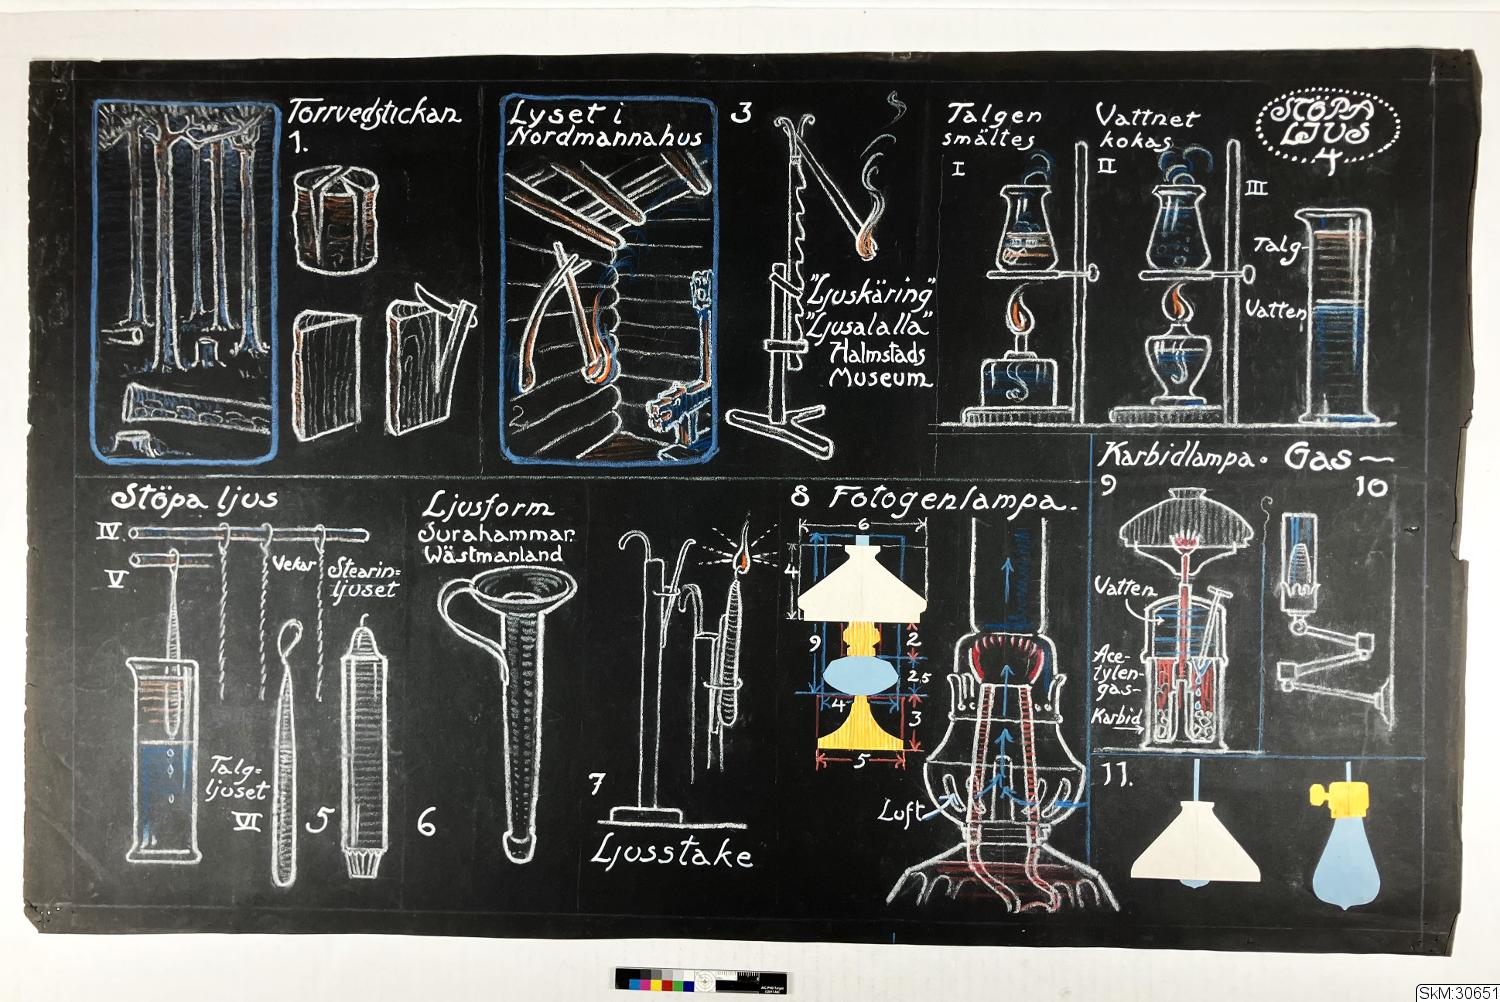 Torrvedstickan
1.
Lyset i
Nordmannahus
2
3
"Ljuskäring"
"Ljusalalla"
Halmstads
Museum
Talgen
smältes
I
Vattnet
kokas
II
STÖPA
LJUS
4
III
Talg-
Vatten
Stöpa ljus
IV
V
Vekar
Stearin=
ljuset
Talg=
ljuset
VI
5
Ljusform
Surahammar.
Wästmanland
6
7
Ljusstake
8 Fotogenlampa.
6
4
9
2
2,5
4
3
5
Luft
Karbidlampa.
9
Vatten
Ace-
tylen-
gas-
Karbid
Gas
10
11.
SkM:30651